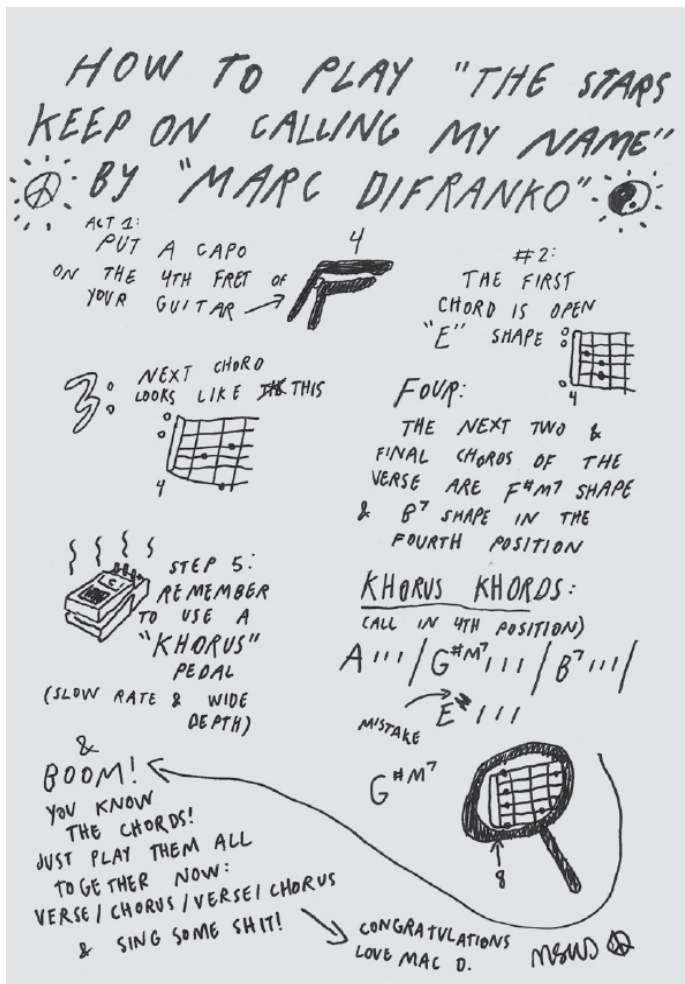 HOW TO PLAY "THE STARS
KEEP ON CALLING MY NAME"
BY "MARC DIFRANKO"
ACT 1:
PUT A CAPO
ON THE 4TH FRET OF
YOUR GUITAR
4
#2:
THE FIRST
CHORD IS OPEN
"E" SHAPE
4
3:
NEXT CHORD
LOOKS LIKE THIS
4
FOUR:
THE NEXT TWO &
FINAL CHORDS OF THE
VERSE ARE F#M7 SHAPE
& B7 SHAPE IN THE
FOURTH POSITION
STEP 5:
REMEMBER
TO USE A
"KHORUS"
PEDAL
(SLOW RATE & WIDE
DEPTH)
KHORUS KHORDS:
(ALL IN 4TH POSITION)
A ǀ ǀ ǀ / G#M7 ǀ ǀ ǀ / B7 ǀ ǀ ǀ /
E ǀ ǀ ǀ
MISTAKE
G#M7
8
&
BOOM!
YOU KNOW
THE CHORDS!
JUST PLAY THEM ALL
TOGETHER NOW:
VERSE / CHORUS / VERSE / CHORUS
& SING SOME SHIT!
CONGRATULATIONS
LOVE MAC D.